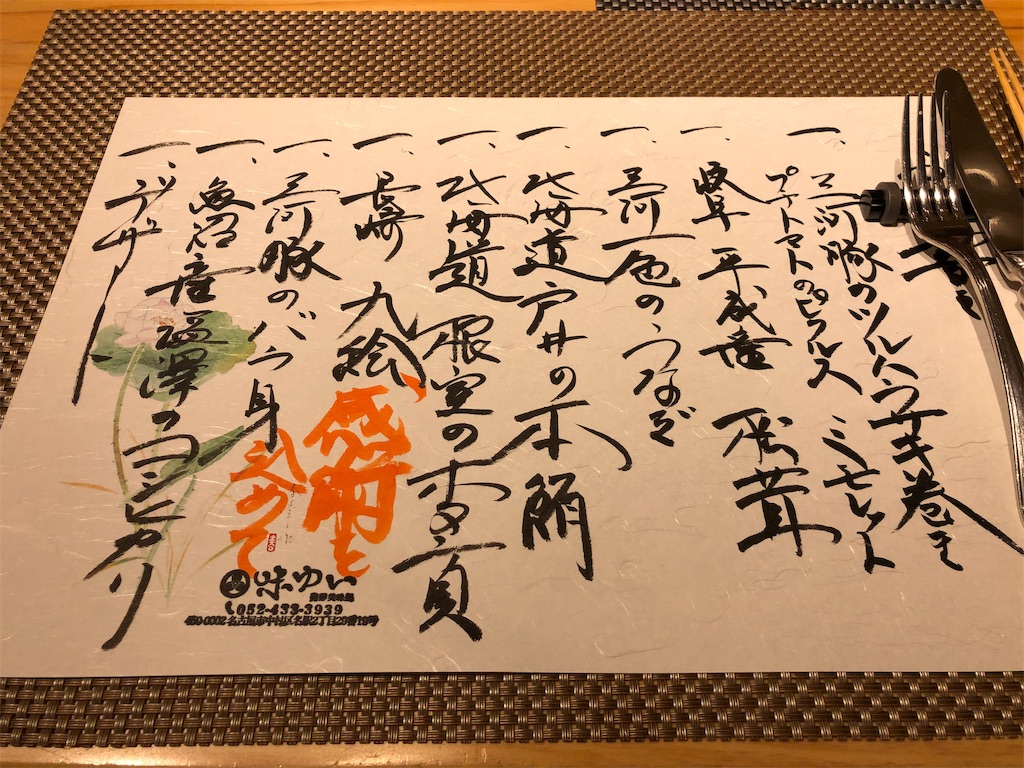 一、三河豚のツルムラサキ巻き
プチトマトのピクルス ミモレット
一、岐阜 平成産 松茸
一、三河一色のうなぎ
一、北海道戸井の本鮪
一、北海道 根室のホタテ貝
一、長崎 九絵
一、三河豚のバラ身
一、魚沼産塩澤のコシヒカリ
一、デザート
感謝を
込めて
味ゆい
052-433-3939
450-0002 名古屋市中村区名駅2丁目29番19号